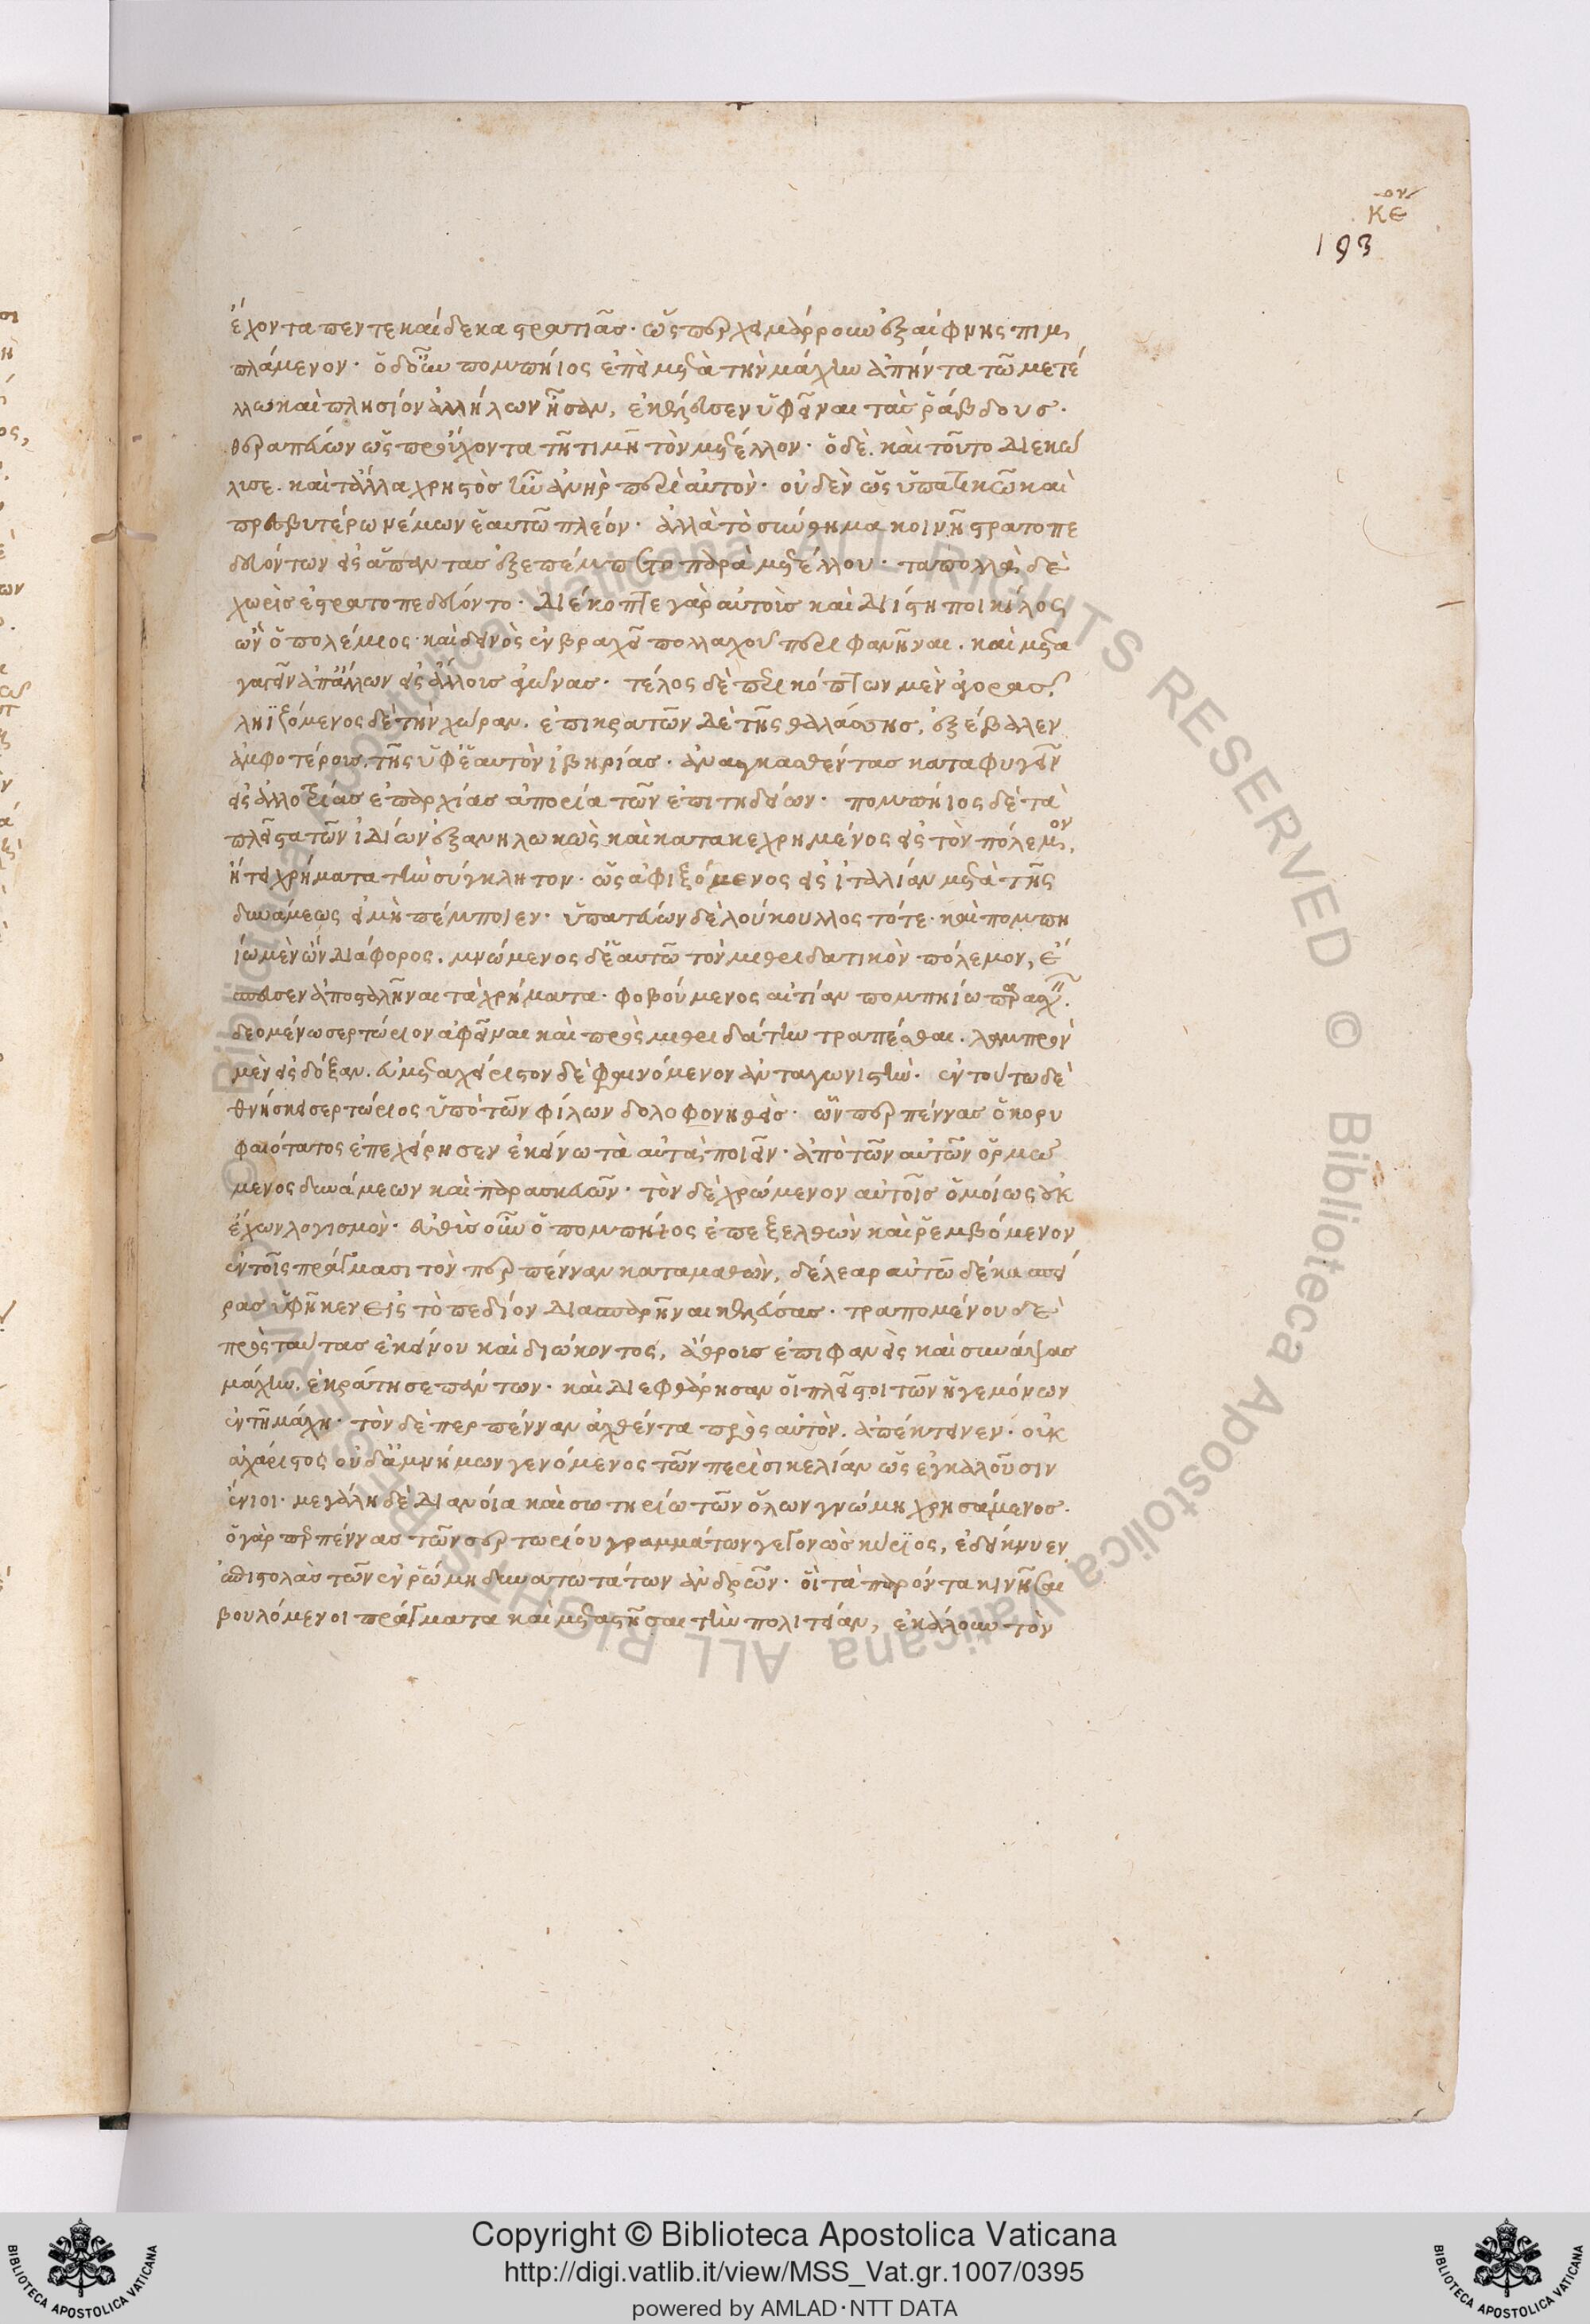 ον
κε
193
ἔχοντα πεντεκαίδεκα στρατιᾶς. ὥσπερ χειμάρρουν ἐξαίφνης πιμ
πλάμενον. ὁ δ' οὖν πομπήιος ἐπεὶ μετὰ τὴν μάχην ἀπήντα τῶ μετέ
λλω καὶ πλησίον ἀλλήλων ἦσαν, ἐκέλευσεν ὑφεῖναι τὰς ῥάβδους.
θεραπεύων ὡς προύχοντα τῆ τιμῆ τὸν μετέλλον. ὁ δὲ. καὶ τοῦτο διεκώ
λυσε. καὶ τἄλλα χρηστὸς ἦν ἀνὴρ περὶ αὐτὸν. οὐδὲν ὡς ὑπατικῶ καὶ
πρεσβυτέρω νέμων ἑαυτῶ πλέον. ἀλλὰ τὸ σύνθημα κοινῆ στρατοπε
δευόντων εἰς ἅπαντας ἐξεπέμπετο παρὰ μετέλλου. τὰ πολλὰ δὲ
χωρὶς ἐστρατοπεδεύοντο. διέκοπτε γὰρ αὐτοὺς καὶ διίστη ποικίλος
ὢν ὁ πολέμιος. καὶ δεινὸς ἐν βραχεῖ πολλαχοῦ περιφανῆναι. καὶ μετα
γαγεῖν ἀπ' ἄλλων εἰς ἄλλους ἀγῶνας. τέλος δὲ περικόπτων μὲν ἀγορὰς.
ληϊζόμενος δὲ τὴν χώραν. ἐπικρατῶν δὲ τῆς θαλάσσης, ἐξέβαλεν
ἀμφοτέρους. τῆς ὑφ' ἑαυτὸν ἰβηρίας. ἀναγκασθέντας καταφυγεῖν
εἰς ἀλλοτρίας ἐπαρχίας ἀπορία τῶν ἐπιτηδείων. πομπήιος δὲ τὰ
πλεῖστα τῶν ἰδίων ἐξανηλωκὼς καὶ κατακεχρημένος εἰς τὸν πόλεμον,
ἤτει χρήματα τὴν σύγκλητον. ὡς ἀφιξόμενος εἰς ἰταλίαν μετὰ τῆς
δυνάμεως εἰ μὴ πέμποιεν. ὑπατεύων δὲ λούκουλλος τότε. καὶ πομπη
ίω μὲν ὢν διάφορος. μνώμενος δ' ἑαυτῶ τὸν μιθριδατικὸν πόλεμον, ἔ
σπευσεν ἀποσταλῆναι τὰ χρήματα. φοβούμενος αἰτίαν πομπηίω παρασχεῖν.
δεομένω σερτώριον ἀφεῖναι καὶ πρὸς μιθριδάτην τραπέσθαι. λαμπρὸν
μὲν εἰς δόξαν. εὐμεταχείριστον δὲ φαινόμενον ἀνταγωνιστὴν. ἐν τούτω δὲ
θνήσκει σερτώριος ὑπὸ τῶν φίλων δολοφονηθεὶς. ὧν περπέννας ὁ κορυ
φαιότατος ἐπεχείρησεν ἐκείνω τὰ αὐτὰ ποιεῖν. ἀπὸ τῶν αὐτῶν ὁρμώ
μενος δυνάμεων καὶ παρασκευῶν. τὸν δὲ χρώμενον αὐτοῖς ὁμοίως οὐκ
ἔχων λογισμὸν. εὐθὺς οὖν ὁ πομπήιος ἐπεξελθὼν καὶ ῥεμβόμενον
ἐν τοῖς πράγμασι τὸν περπένναν καταμαθὼν, δέλεαρ αὐτῶ δέκα σπεί
ρας ὑφῆκεν εἰς τὸ πεδίον διασπαρῆναι κελεύσας. τραπομένου δὲ
πρὸς ταύτας ἐκείνου καὶ διώκοντος, ἄθρους ἐπιφανεὶς καὶ συνάψας
μάχην. ἐκράτησε πάντων. καὶ διεφθάρησαν οἱ πλεῖστοι τῶν ἡγεμόνων
ἐν τῆ μάχη. τὸν δὲ περπένναν ἀχθέντα πρὸς αὐτὸν. ἀπέκτεινεν. οὐκ
ἀχάριστος οὐδ' ἀμνήμων γενόμενος τῶν περὶ σικελίαν ὡς ἐγκαλοῦσιν
ἔνιοι. μεγάλη δὲ διανοία καὶ σωτηρίω τῶν ὅλων γνώμη χρησάμενος.
ὁ γὰρ περπέννας τῶν σερτωρίου γραμμάτων γεγονὼς κύριος, ἐδείκνυεν
ἐπιστολὰς τῶν ἐν ῥώμη δυνατωτάτων ἀνδρῶν. οἳ τὰ παρόντα κινῆσαι
βουλόμενοι πράγματα καὶ μεταστῆσαι τὴν πολιτείαν, ἐκάλουν τὸν
Copyright © Biblioteca Apostolica Vaticana
http://digi.vatlib.it/view/MSS_Vat.gr.1007/0395
powered by AMLAD·NTT DATA
BIBLIOTECA APOSTOLICA VATICANA
BIBLIOTECA APOSTOLICA VATICANA
© Biblioteca Apostolica Vaticana ALL RIGHTS RESERVED © Biblioteca Apostolica Vaticana ALL RIGHTS RESERVED